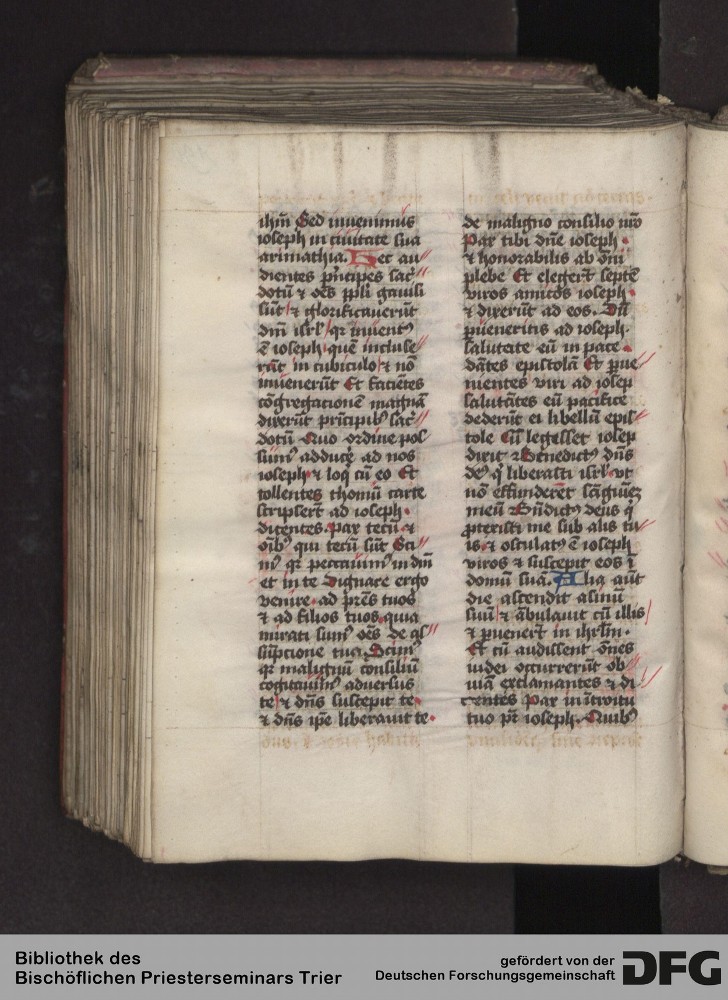 ihm̄ Sed inuenimus
ioseph in ciuitate sua
arimathia. Hec au
dientes p̄ncipes sac̄
dotū ⁊ oēs pp̄li gauisi
sūt ⁊ glorificauerūt
dm̄ isrl̄ qꝛ inuentꝰ
ē ioseph quē incluse
rūt in cubiculo ⁊ nō
inuenerūt Et faciētes
cōgregacionē magnā
dixerūt prīcipibꝰ sac̄
dotū Quo ordine pos
sumꝰ adducē ad nos
ioseph ⁊ loq̄ cū eo Et
tollentes thomū carte
scripsert̄ ad ioseph.
dicentes. Pax tecū ⁊
oībꝰ qui tecū sūt Sci
mꝰ qꝛ peccauimꝰ in dm̄
et in te Dignare ergo
venire ad p̄res tuos
⁊ ad filios tuos quia
mirati sumꝰ oēs de as
sūpcione tua. Scimꝰ
qꝛ malignū consiliū
cogitauimꝰ aduersus
te ⁊ dn̄s suscepit te
⁊ dn̄s ip̄e liberauit te.
de maligno consilio nr̄o
Pax tibi dn̄e ioseph.
⁊ honorabilis ab om̄i
plebe Et elegert̄ septē
viros amicos ioseph
⁊ dixerūt ad eos. Dū
p̄ueneritis ad ioseph.
salutate eū in pace.
dātes epistolā Et p̄ue
nientes viri ad iosep
salutātes eū pacifice
dederūt ei libellū epis
tole Cū legisset iosep
dixit Benedictꝰ dn̄s
deꝰ q̄ liberasti isrl̄ vt
nō effunderet sāguīez
meū Bn̄dictꝰ deus q̄
ꝓtexisti me sub alis tu
is. ⁊ osculatꝰ ē ioseph
viros ⁊ suscepit eos ī
domū suā. Alia aūt
die ascendit asinū
suū ⁊ ābulauit cū illis
⁊ ꝑuenert̄ in ihrlm̄.
Et cū audissent om̄es
iudei occurrerūt ob
uiā exclamantes ⁊ di
centes Pax in ītroitu
tuo pr̄ ioseph. Quibꝰ
Bibliothek des
Bischöflichen Priesterseminars Trier
gefördert von der
Deutschen Forschungsgemeinschaft
DFG